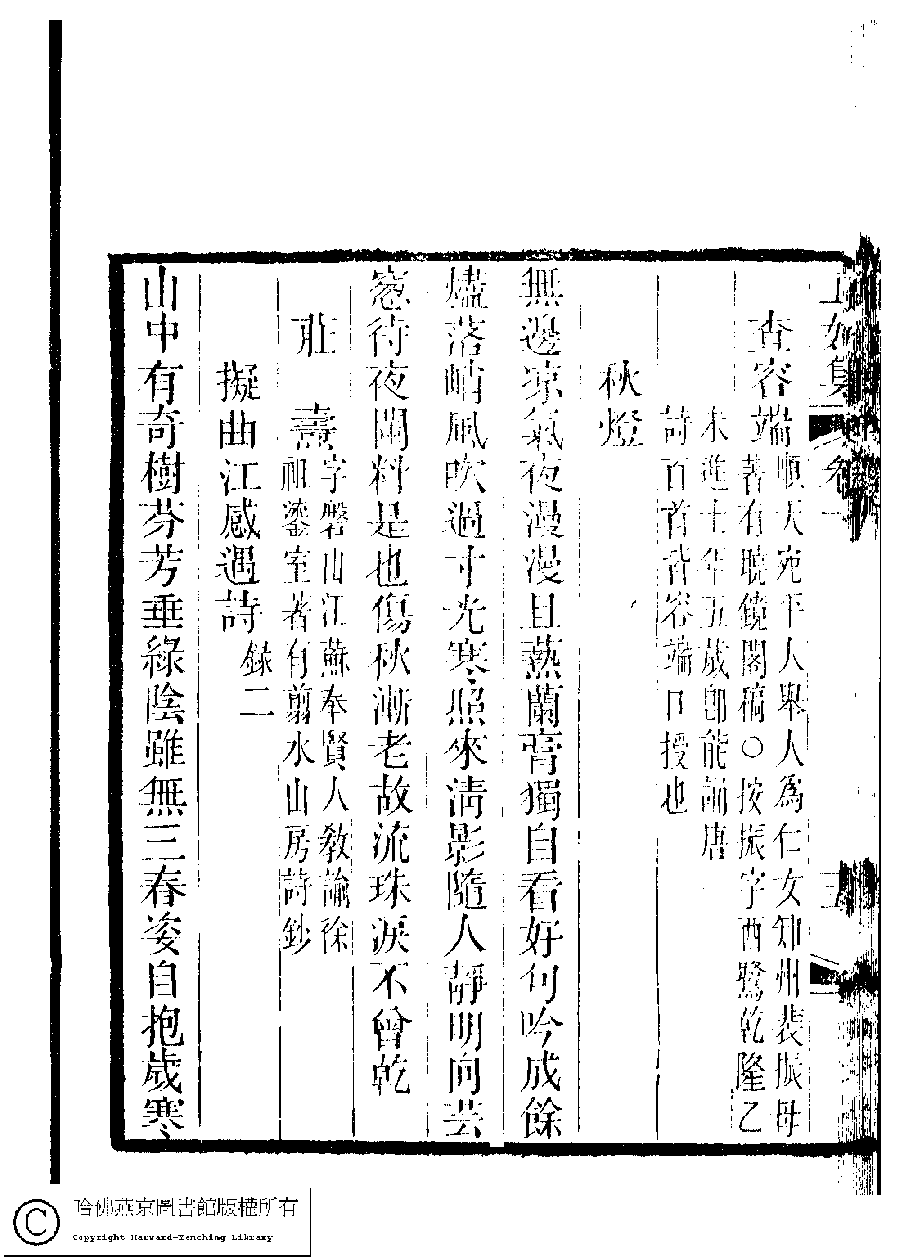 查容端
順天宛平人舉人為仁女知州裴振母
著有曉鏡閣稿〇按振字西鷺乾隆乙
未進士年五歲即能誦唐
詩百首皆容端口授也
秋燈
無邊涼氣夜漫漫且爇蘭膏獨自看好句吟成餘
燼落峭風吹過寸光寒照來清影隨人靜明向芸
窓待夜闌料是也傷秋漸老故流珠淚不曾乾
莊 壽
字磐山江蘇奉賢人教諭徐
祖鎏室著有剪水山房詩鈔
擬曲江感遇詩
錄二
山中有奇樹芬芳垂綠陰雖無三春姿自抱歲寒
哈佛燕京圖書館版權所有
Copyright Harvard-Yenching Library